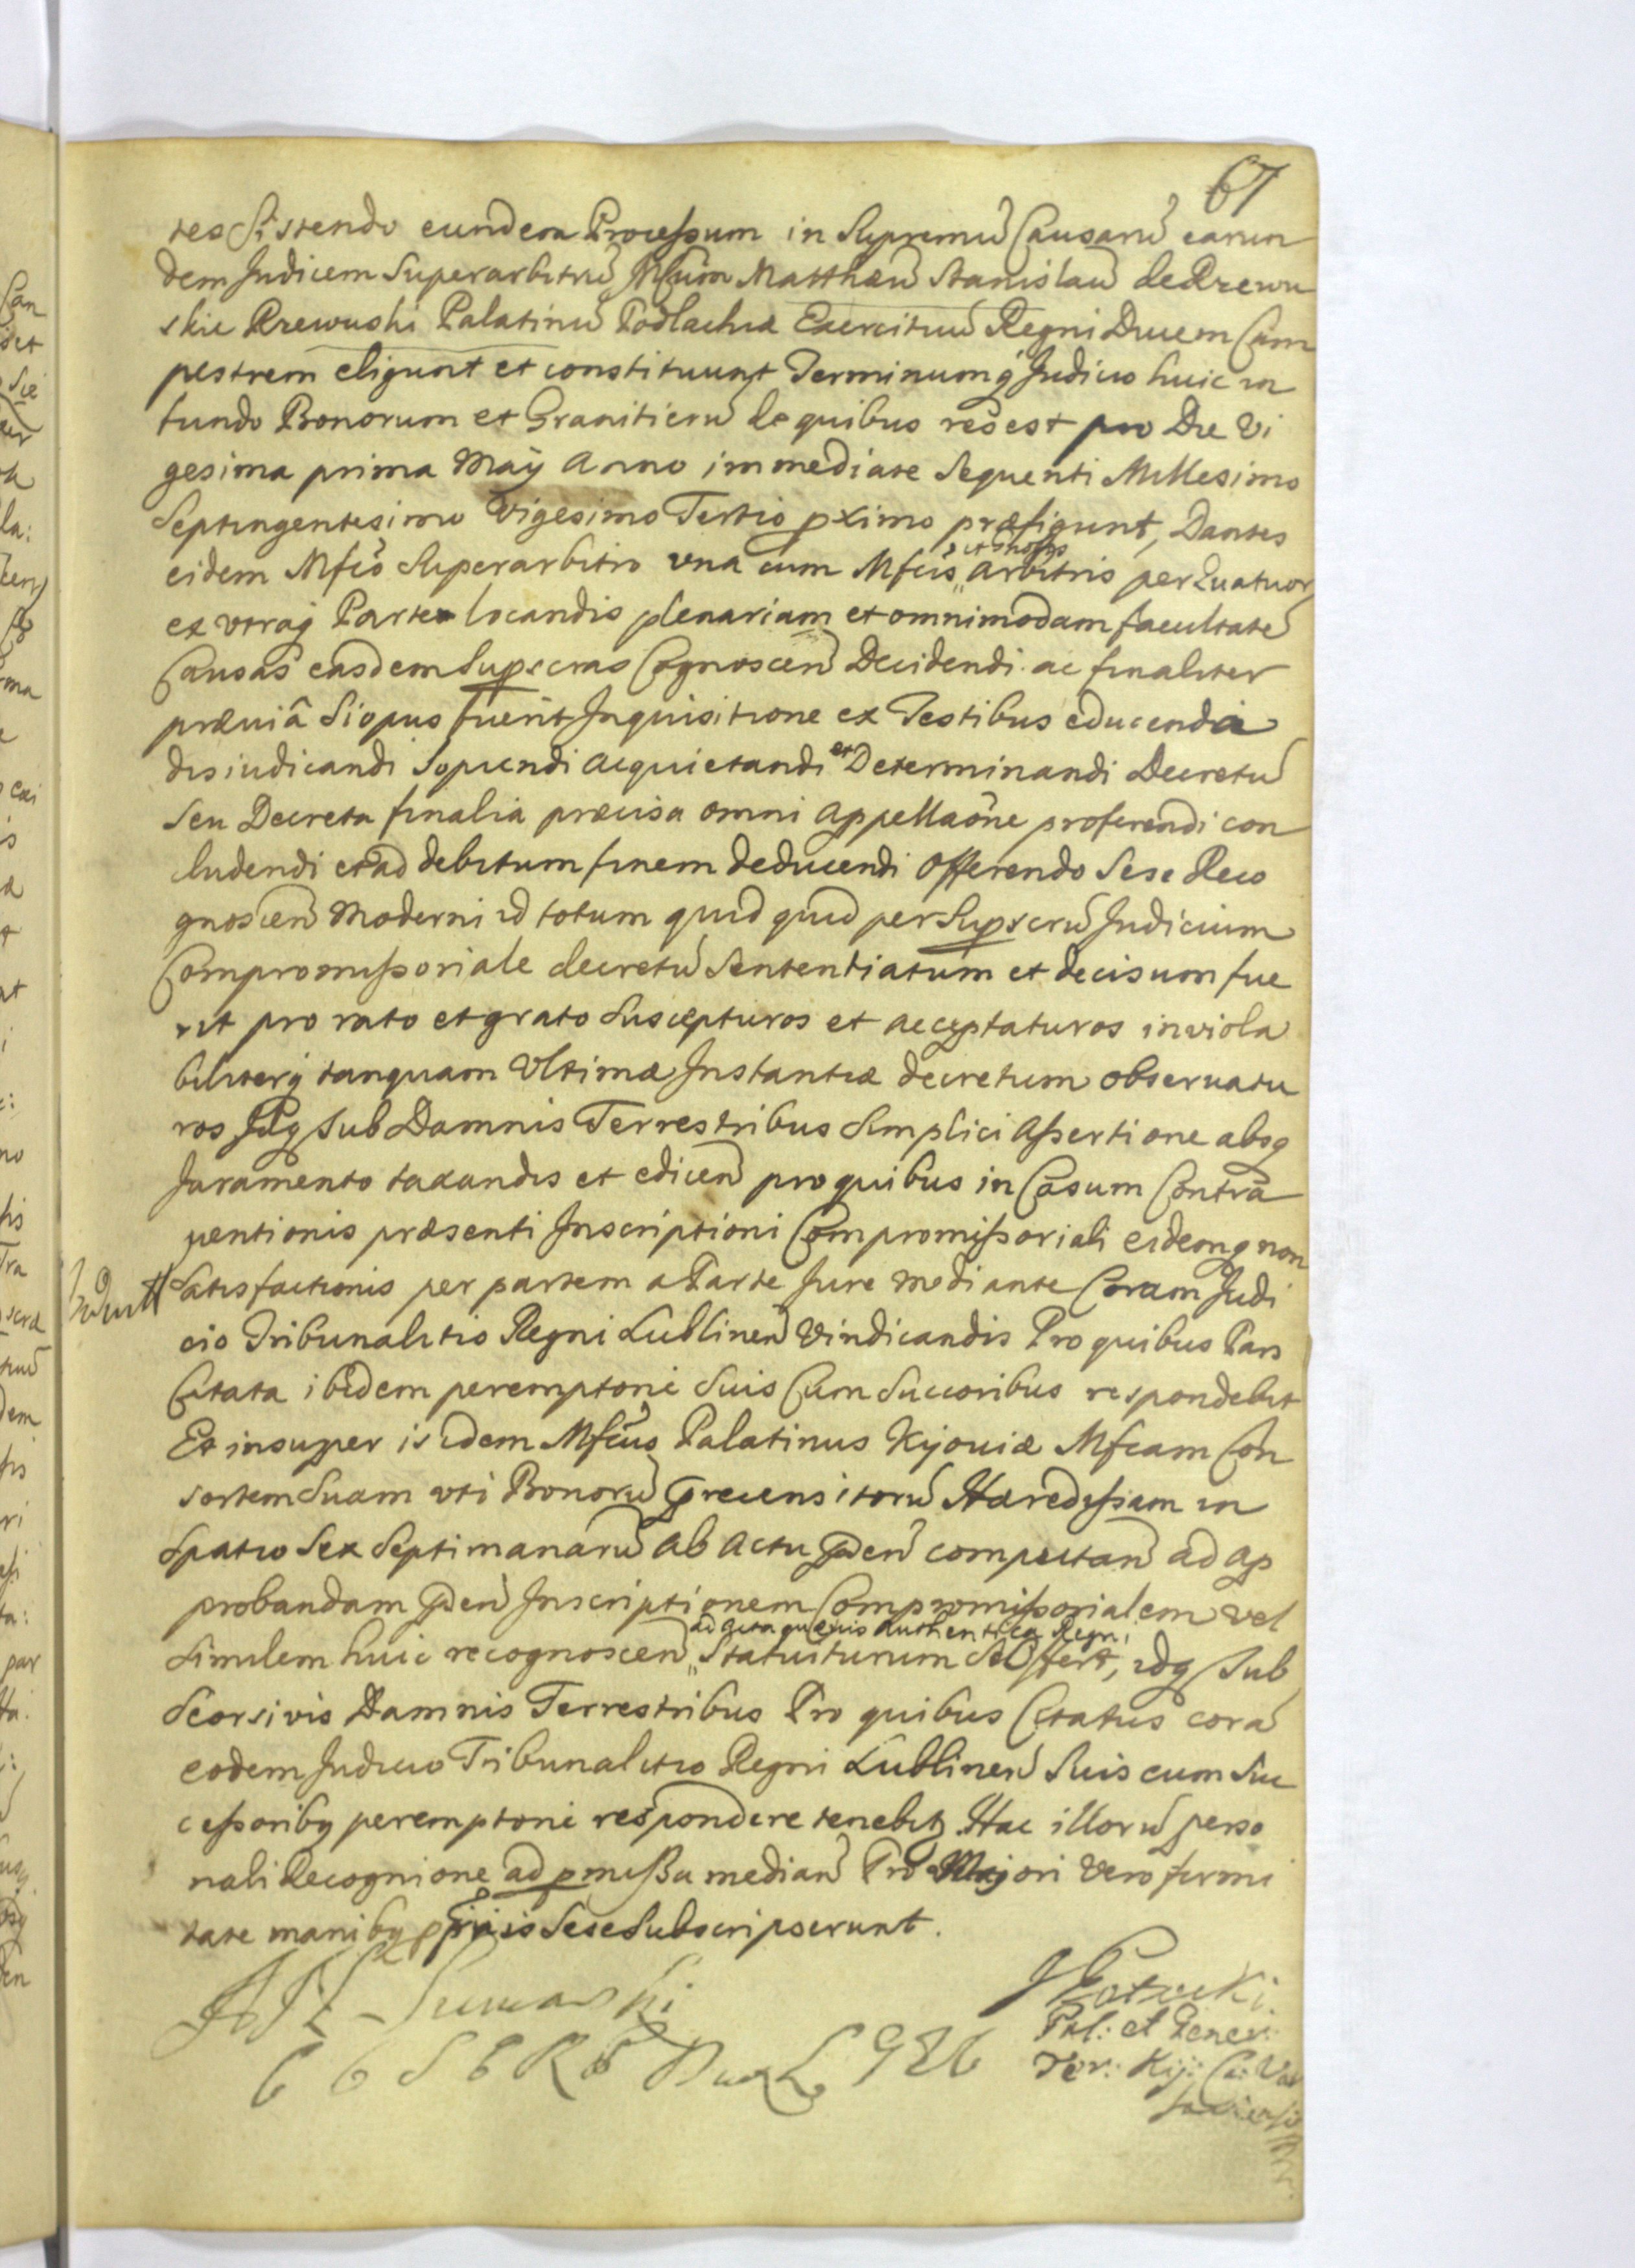 67
tes Sistendo eundem Processum in Supremũ Causarũ earun
dem Judicem Superarbitrũ Mfcum Matthæũ Stanislaũ de Rzewu
skie Rzewuski Palatinũ Podlachiæ Exercituũ Regni Ducem Cam
pestrem eligunt et constituunt Terminumq̃ Judicio huic in
fundo Bonorum et Granitierũ de quibus res est pro Die Vi
gesima prima Maÿ Anno immediate Sequenti Millesimo
Septingentesimo Vigesimo Tertio pximo præfigunt, Dantes
eidem Mfco Superarbitro vna cum Mfcis Arbitris per Quatuor
ex vtraq̃ Parte locandis plenariam et omnimodam facultatẽ
Causas easdem Suprscras Cognoscen̄ Decidendi ac finaliter
præuiâ Si opus fuerit Inquisitione ex Testibus educenda
disiudicandi Sopiendi acquietandi et Determinandi Decretũ
Seu Decreta finalia præcisa omni appellaõne proferendi con
ludendi et ad debitum finem deducendi Offerendo Sese Reco
gnoscen̄ Moderni id totum quid quid per Suprscrũ Judicium
Compromissoriale decretũ Sententiatum et decisum fue
rit pro rato et grato Suscepturos et acceptaturos inviola
biliterq̃ tanquam Vltimæ Instantiæ decretum obseruatu
ros Idq̃ Sub Damnis Terrestribus Simplici Assertione absq̃
Juramento taxandis et edicen̄ pro quibus in Casum Contra
uentionis præsenti Inscriptioni Compromissoriali eidemq̃ non
Satisfactionis per partem a Parte Jure mediante Coram Judi
cio Tribunalitio Regni Lublinen̄ Vindicandis Pro quibus Pars
Citata ibidem peremptorie Suis Cum Succoribus respondebit
Et insuper isdem Mfcus Palatinus Kijouiæ Mfcam Con
sortem Suam vti Bonorũ precensitorũ Hæredissam in
Spatio Sex Septimanarũ ab actu pden̄ computan̄ ad ap
probandam pden̄ Inscriptionem Compromissorialem vel
ad acta quæuis Authentica Regni
Similem huic recognoscen̄ Statuiturum Se Offert, idq̃ Sub
Seorsivis Damnis Terrestribus Pro quibus Citatus corã
eodem Judicio Tribunalitio Regni Lublinen̄ Suis cum Suc
cessoribq peremptorie respondere tenebit Hac illorũ perso
nali Recognione ad pmissa median̄ Pro Majori Vero firmi
tate manibq ppriis Sese Subscripserunt.
J Potocki
Pal: et Gener:
Ter: Kij: